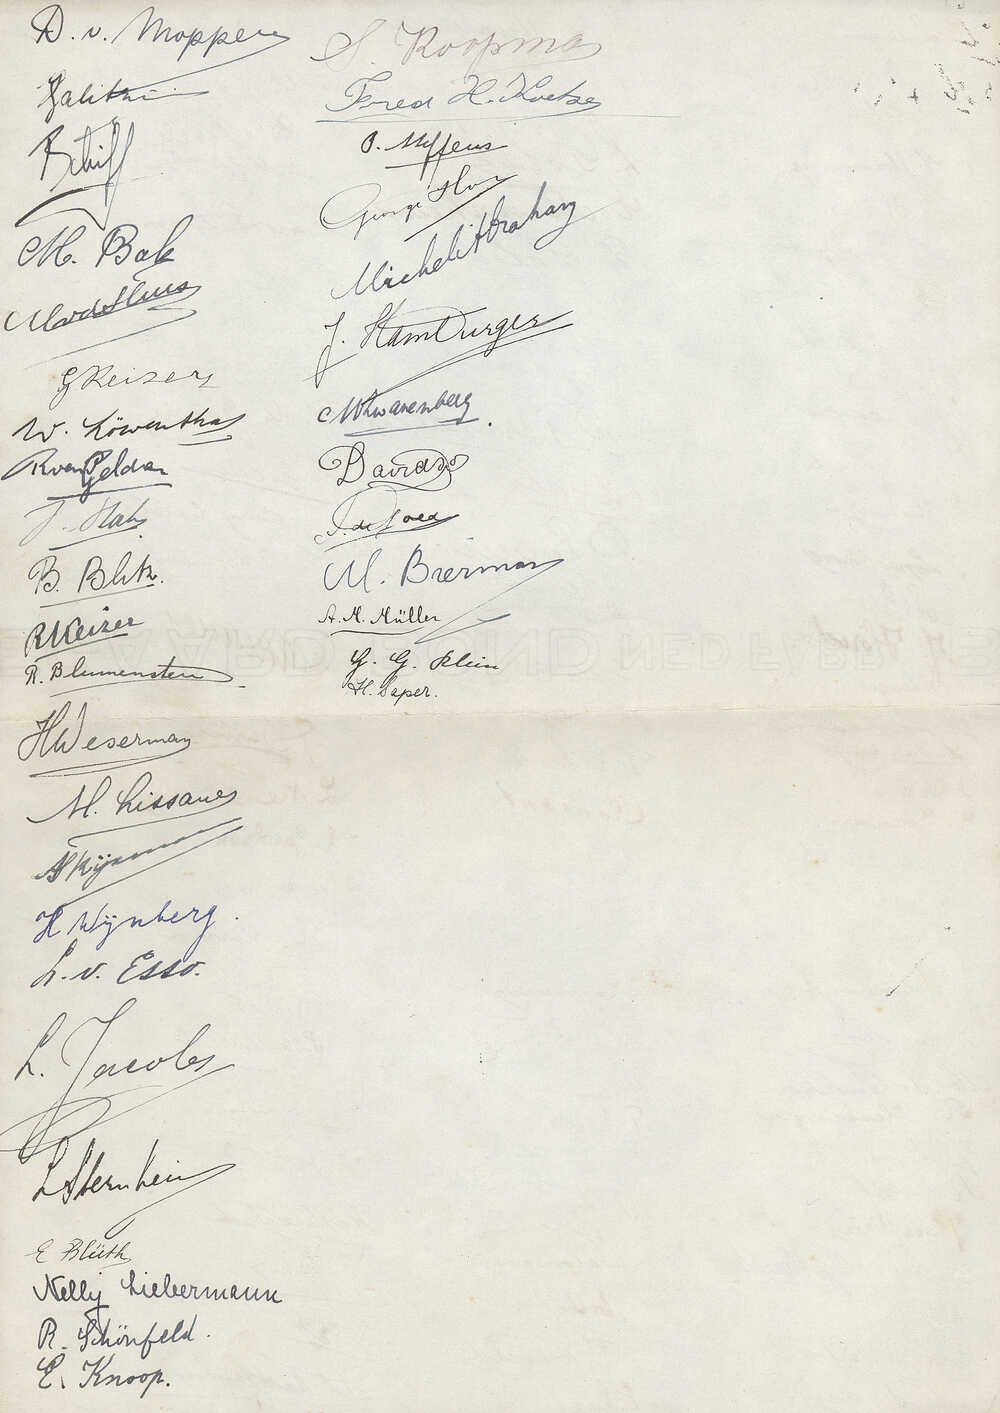 D. v. Moppes
Galitski
Schiff
M. Bak
G Keizers
W. Löwenthal
R van Gelder
B. Blik.
R Keizer
R. Blumenstein
H Weserman
M. Lissauer
H Wijnberg.
L. v. Esso.
L. Jacobs
L Sternheim
E Blüth
Nelly Liebermann
R. Schönfeld.
E. Knoop.
S. Koopman
Fred H. Kotze
George
Michel Abraham
J. Hamburger
M Zwanenberg.
Davids
J. de Goed
M. Bierman
A. M. Müller
G. G. Klein
H. Saper.